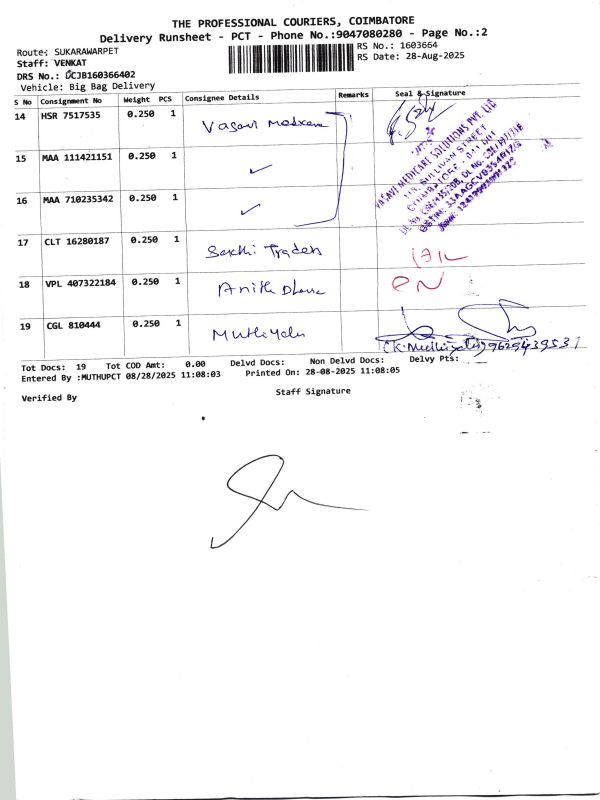 THE PROFESSIONAL COURIERS, COIMBATORE
Delivery Runsheet - PCT - Phone No.:9047080280 - Page No.:2
Route: SUKARAWARPET
Staff: VENKAT
DRS No.: DCJB160366402
Vehicle: Big Bag Delivery
RS No.: 1603664
RS Date: 28-Aug-2025
S No Consignment No Weight PCS Consignee Details Remarks Seal & Signature
14 HSR 7517535 0.250 1 Vasavi
15 MAA 111421151 0.250 1 ✓
16 MAA 710235342 0.250 1 ✓
VASAVI MEDICARE SOLUTIONS PVT. LTD
SULLIVAN STREET
COIMBATORE - 641 001
17 CLT 16280187 0.250 1 Sakthi Traders
18 VPL 407322184 0.250 1 Anith
19 CGL 810444 0.250 1 Muthiyalu
9629439531
Tot Docs: 19 Tot COD Amt: 0.00 Delvd Docs: Non Delvd Docs: Delvy Pts:
Entered By :MUTHUPCT 08/28/2025 11:08:03 Printed On: 28-08-2025 11:08:05
Verified By Staff Signature